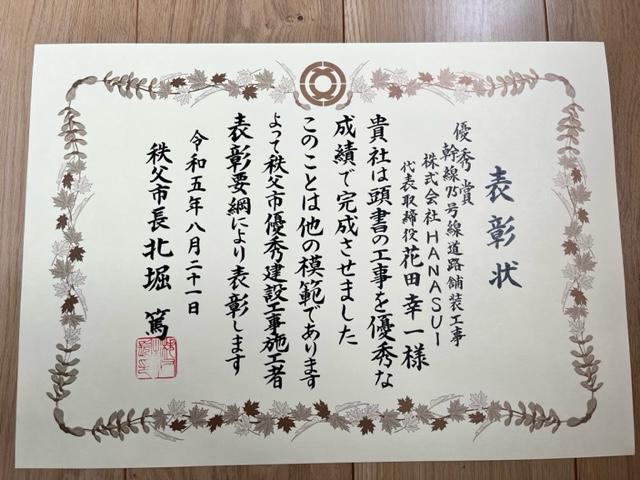 表彰状
優秀賞
幹線75号線道路舗装工事
株式会社HANASUI
代表取締役 花田幸一様
貴社は頭書の工事を優秀な
成績で完成させました
このことは他の模範であります
よって秩父市優秀建設工事施工者
表彰要綱により表彰します
令和五年八月二十一日
秩父市長 北堀篤